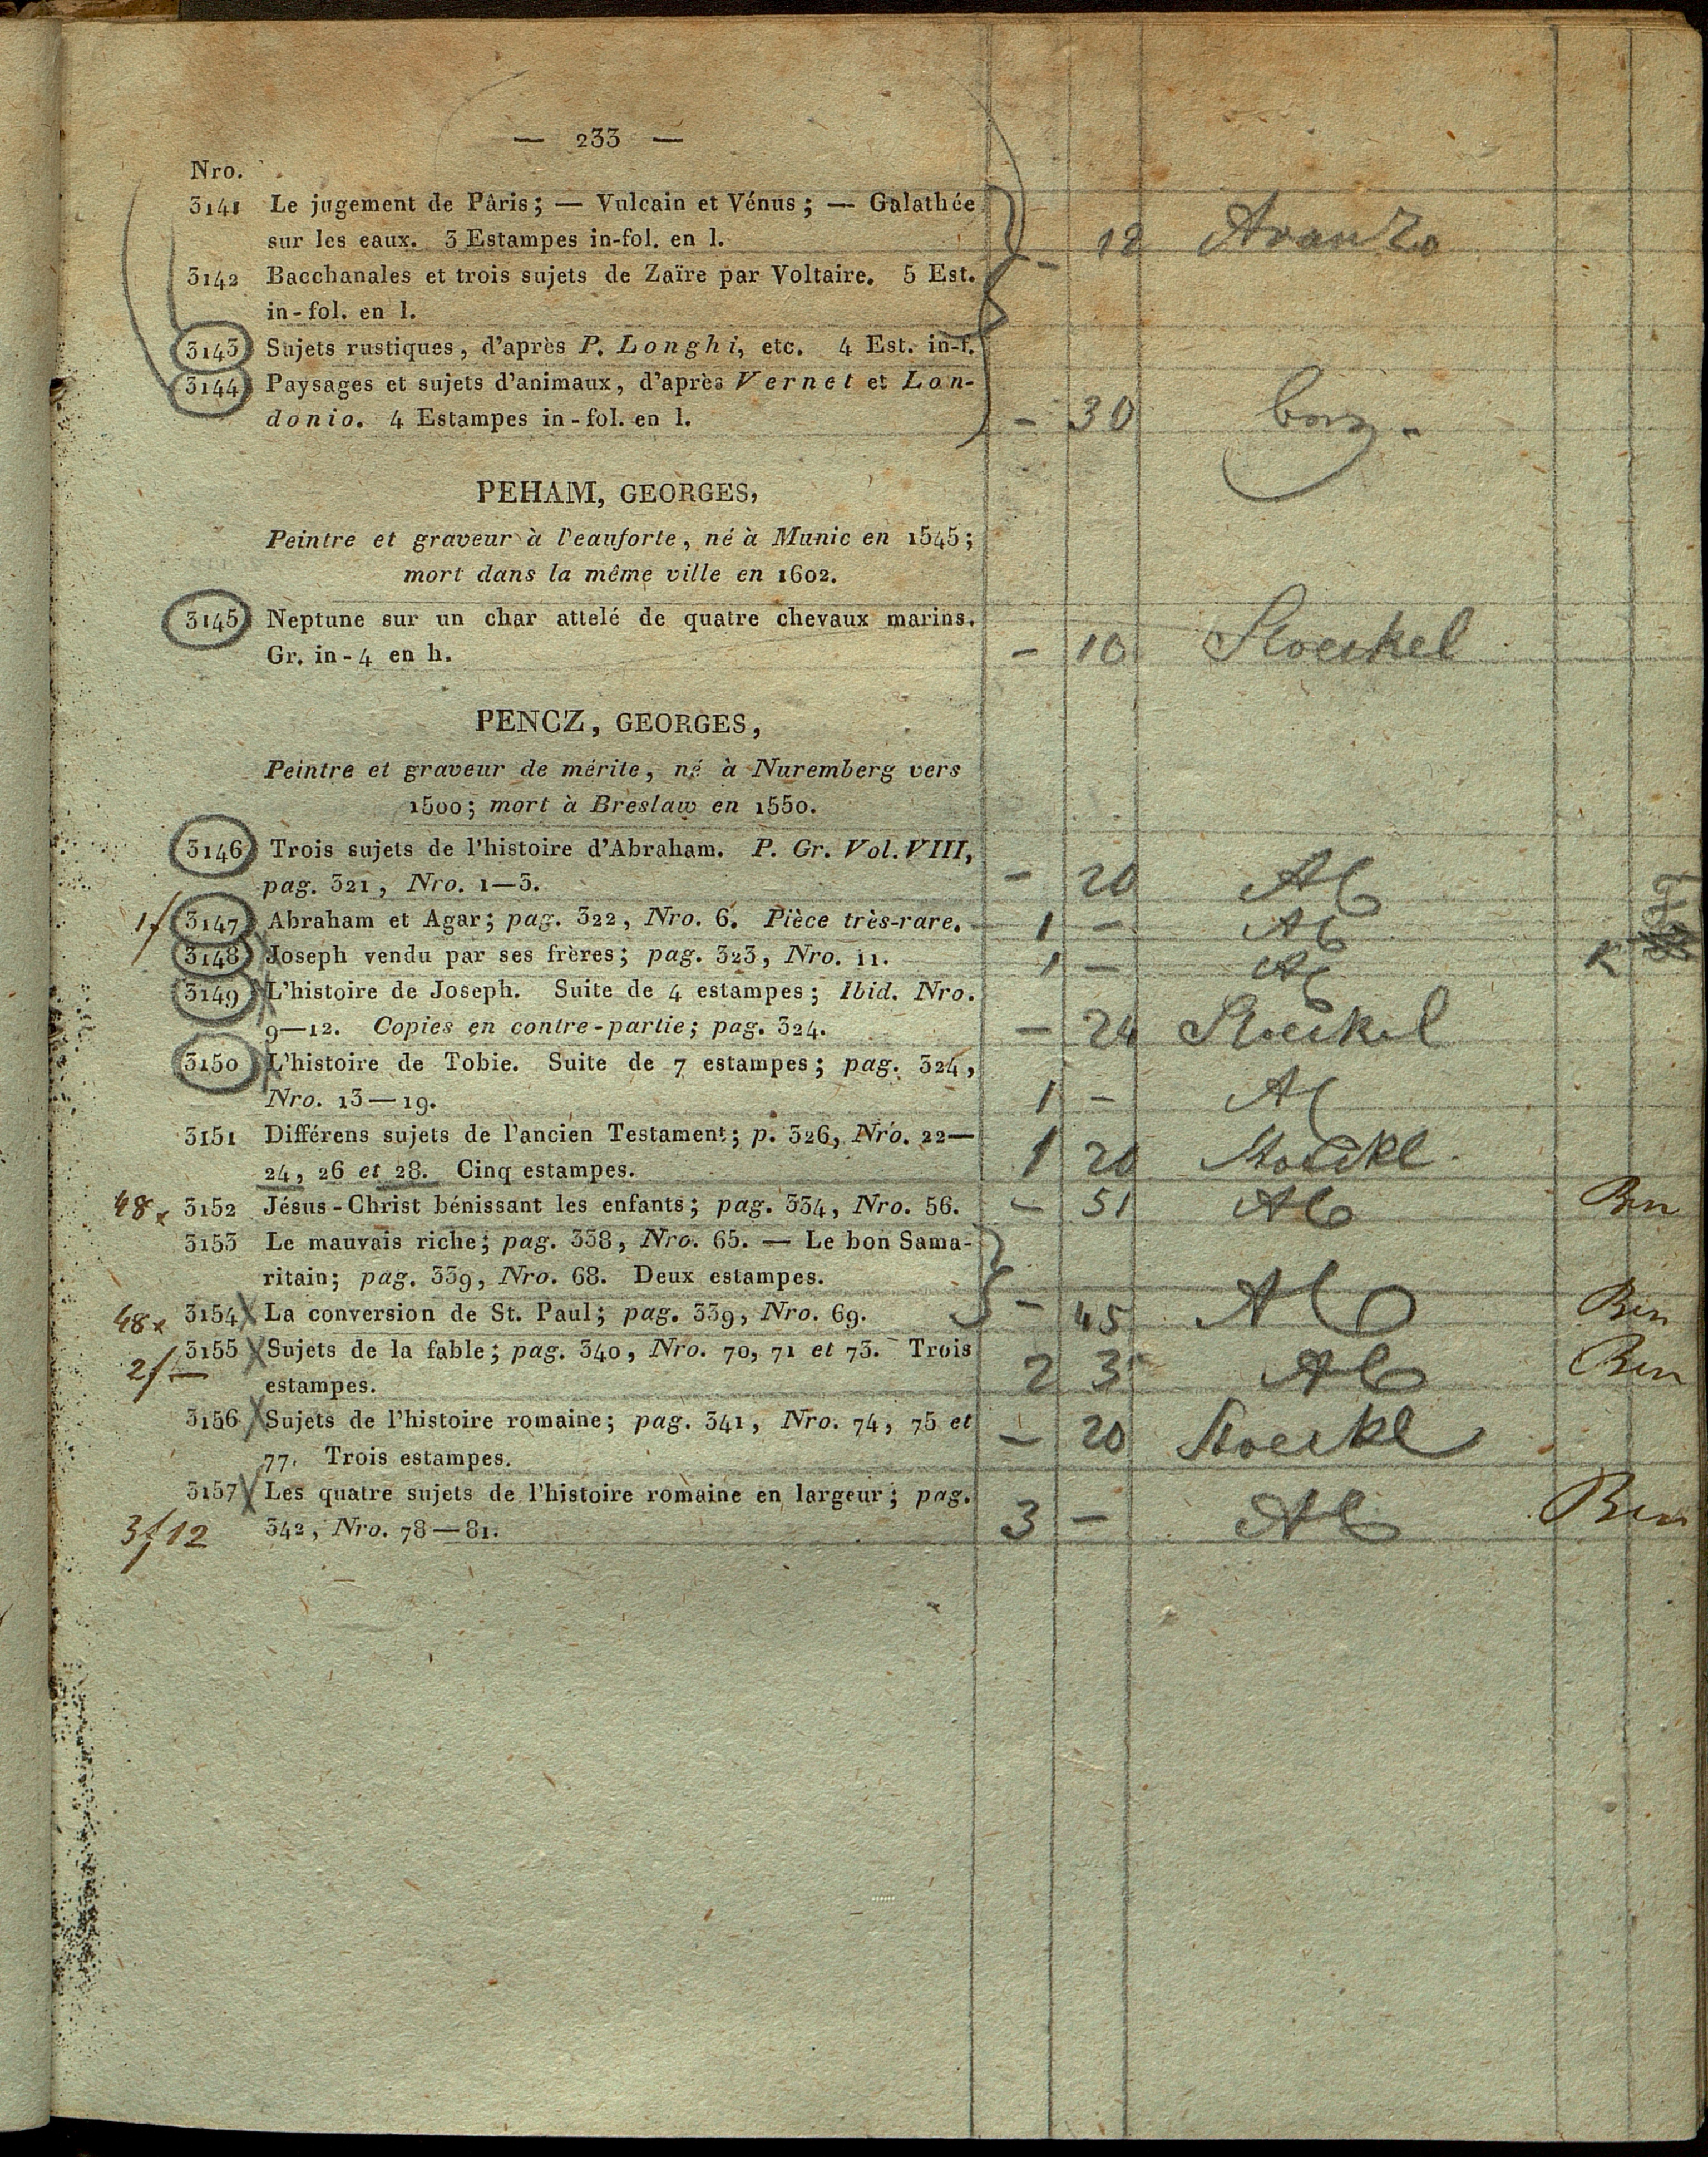 — 233 —
Nro.
3141 Le jugement de Pâris; — Vulcain et Vénus; — Galathée
sur les eaux. 3 Estampes in-fol. en l.
- 12 Avanzo
3142 Bacchanales et trois sujets de Zaïre par Voltaire. 5 Est.
in-fol. en l.
3143 Sujets rustiques, d'après P. Longhi, etc. 4 Est. in-f.
3144 Paysages et sujets d'animaux, d'après Vernet et Lon-
donio. 4 Estampes in-fol. en l. - 30
PEHAM, GEORGES,
Peintre et graveur à l'eauforte, né à Munic en 1545;
mort dans la même ville en 1602.
3145 Neptune sur un char attelé de quatre chevaux marins.
Gr. in-4 en h. - 10 Stoeckel
PENCZ, GEORGES,
Peintre et graveur de mérite, né à Nuremberg vers
1500; mort à Breslaw en 1550.
3146 Trois sujets de l'histoire d'Abraham. P. Gr. Vol. VIII,
pag. 321, Nro. 1—3. - 20 Al
1f 3147 Abraham et Agar; pag. 322, Nro. 6. Pièce très-rare. 1 - Al
3148 Joseph vendu par ses frères; pag. 323, Nro. 11. 1 - Al
3149 L'histoire de Joseph. Suite de 4 estampes; Ibid. Nro.
9—12. Copies en contre-partie; pag. 324. - 24 Stoeckel
3150 L'histoire de Tobie. Suite de 7 estampes; pag. 324,
Nro. 13—19. 1 - Al
3151 Différens sujets de l'ancien Testament; p. 326, Nro. 22—
24, 26 et 28. Cinq estampes. 1 20 Stoeckl
48x 3152 Jésus-Christ bénissant les enfants; pag. 334, Nro. 56. - 51 Al Ben
3153 Le mauvais riche; pag. 338, Nro. 65. — Le bon Sama-
ritain; pag. 339, Nro. 68. Deux estampes.
48x 3154 La conversion de St. Paul; pag. 339, Nro. 69. - 45 Al Ben
2f— 3155 Sujets de la fable; pag. 340, Nro. 70, 71 et 73. Trois
estampes. 2 3 Al Ben
3156 Sujets de l'histoire romaine; pag. 341, Nro. 74, 75 et
77. Trois estampes. - 20 Stoeckl
3157 Les quatre sujets de l'histoire romaine en largeur; pag.
3f12 342, Nro. 78—81. 3 - Al Ben